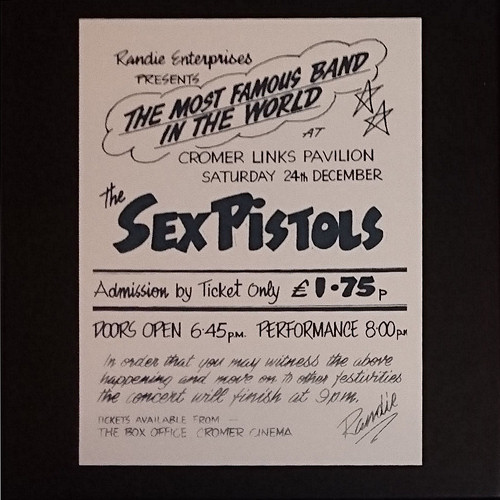 Randie Enterprises
PRESENTS
THE MOST FAMOUS BAND
IN THE WORLD
AT
CROMER LINKS PAVILION
SATURDAY 24th DECEMBER
the
SEX PISTOLS
Admission by Ticket Only £1.75p
DOORS OPEN 6.45p.m. PERFORMANCE 8.00p.m
In order that you may witness the above
happening and move on to other festivities
the concert will finish at 9pm.
TICKETS AVAILABLE FROM —
THE BOX OFFICE CROMER CINEMA
Randie